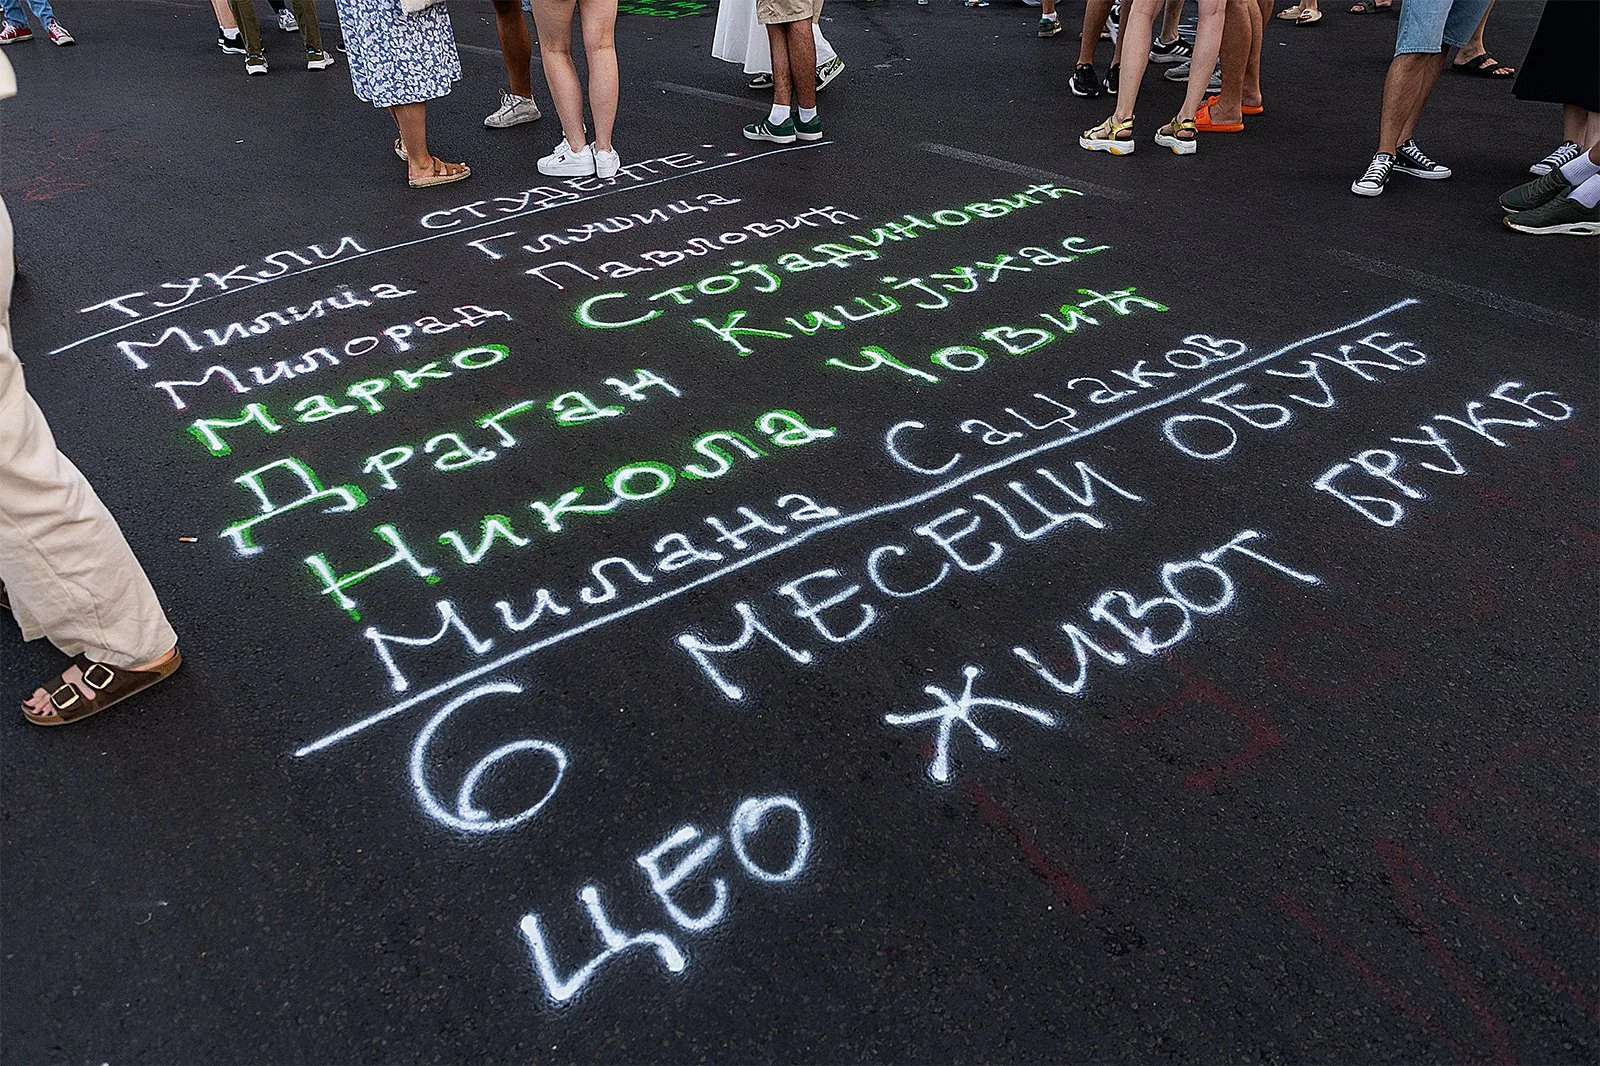 ТУКЛИ СТУДЕНТЕ:
Милица Глушица
Милорад Павловић
Марко Стојадиновић
Драган Кишјухас
Никола Човић
Милана Саџаков
6 МЕСЕЦИ ОБУКЕ
ЦЕО ЖИВОТ БРУКЕ